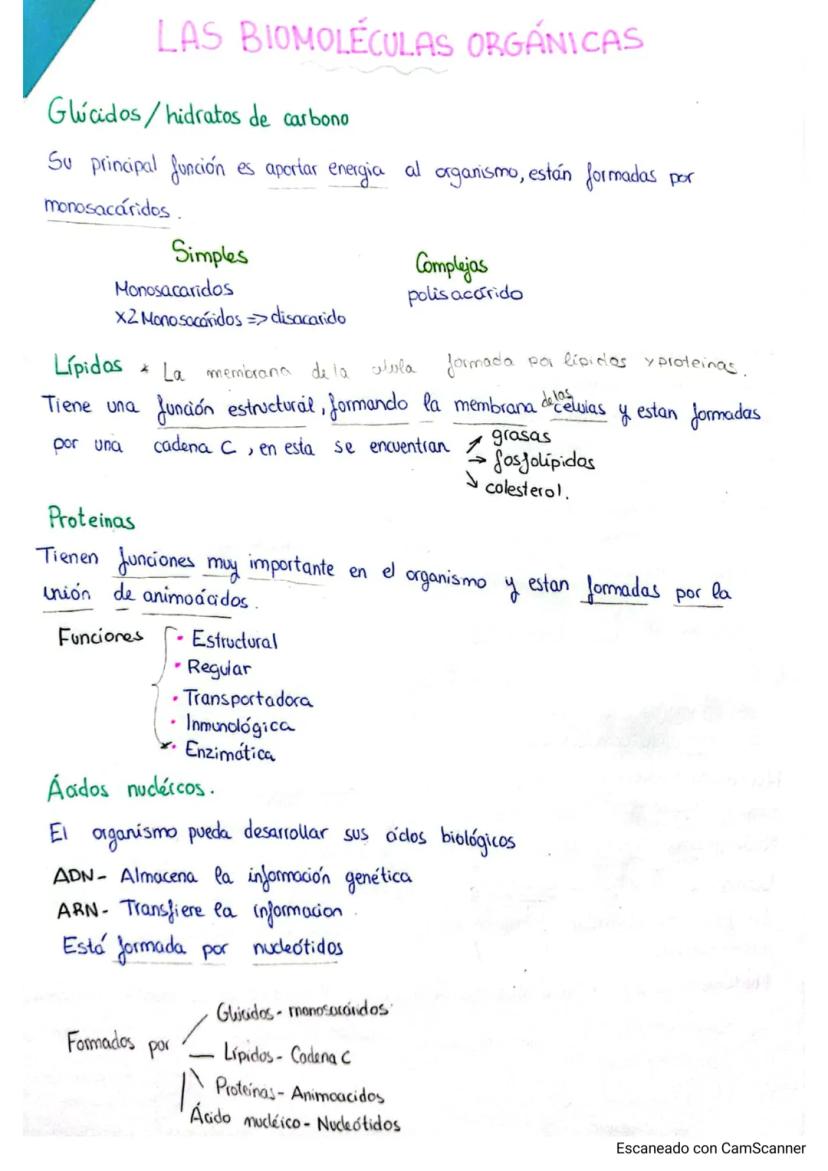 LAS BIOMOLÉCULAS ORGÁNICAS
Glúcidos / hidratos de carbono
Su principal función es aportar energia al organismo, están formadas por
monosacáridos.
Simples
Complejas
Monosacaridos
polisacárido
X2 Monosacáridos => disacarido
Lípidos * La membrana de la celula formada por lípidos y proteinas.
Tiene una función estructural, formando la membrana de las células y estan formadas
por una cadena C, en esta se encuentran ↗ grasas
→ fosfolípidos
↘ colesterol.
Proteinas
Tienen funciones muy importante en el organismo y estan formadas por la
unión de animoácidos.
Funciones
• Estructural
• Regular
• Transportadora
• Inmunológica
• Enzimática
Ácidos nucléicos.
El organismo pueda desarrollar sus ciclos biológicos
ADN - Almacena la información genética
ARN - Transfiere la informacion
Está formada por nucleótidos
Glúcidos - monosacáridos
Formados por
Lípidos - Cadena C
Proteínas - Animoacidos
Ácido nucléico - Nucleótidos
Escaneado con CamScanner